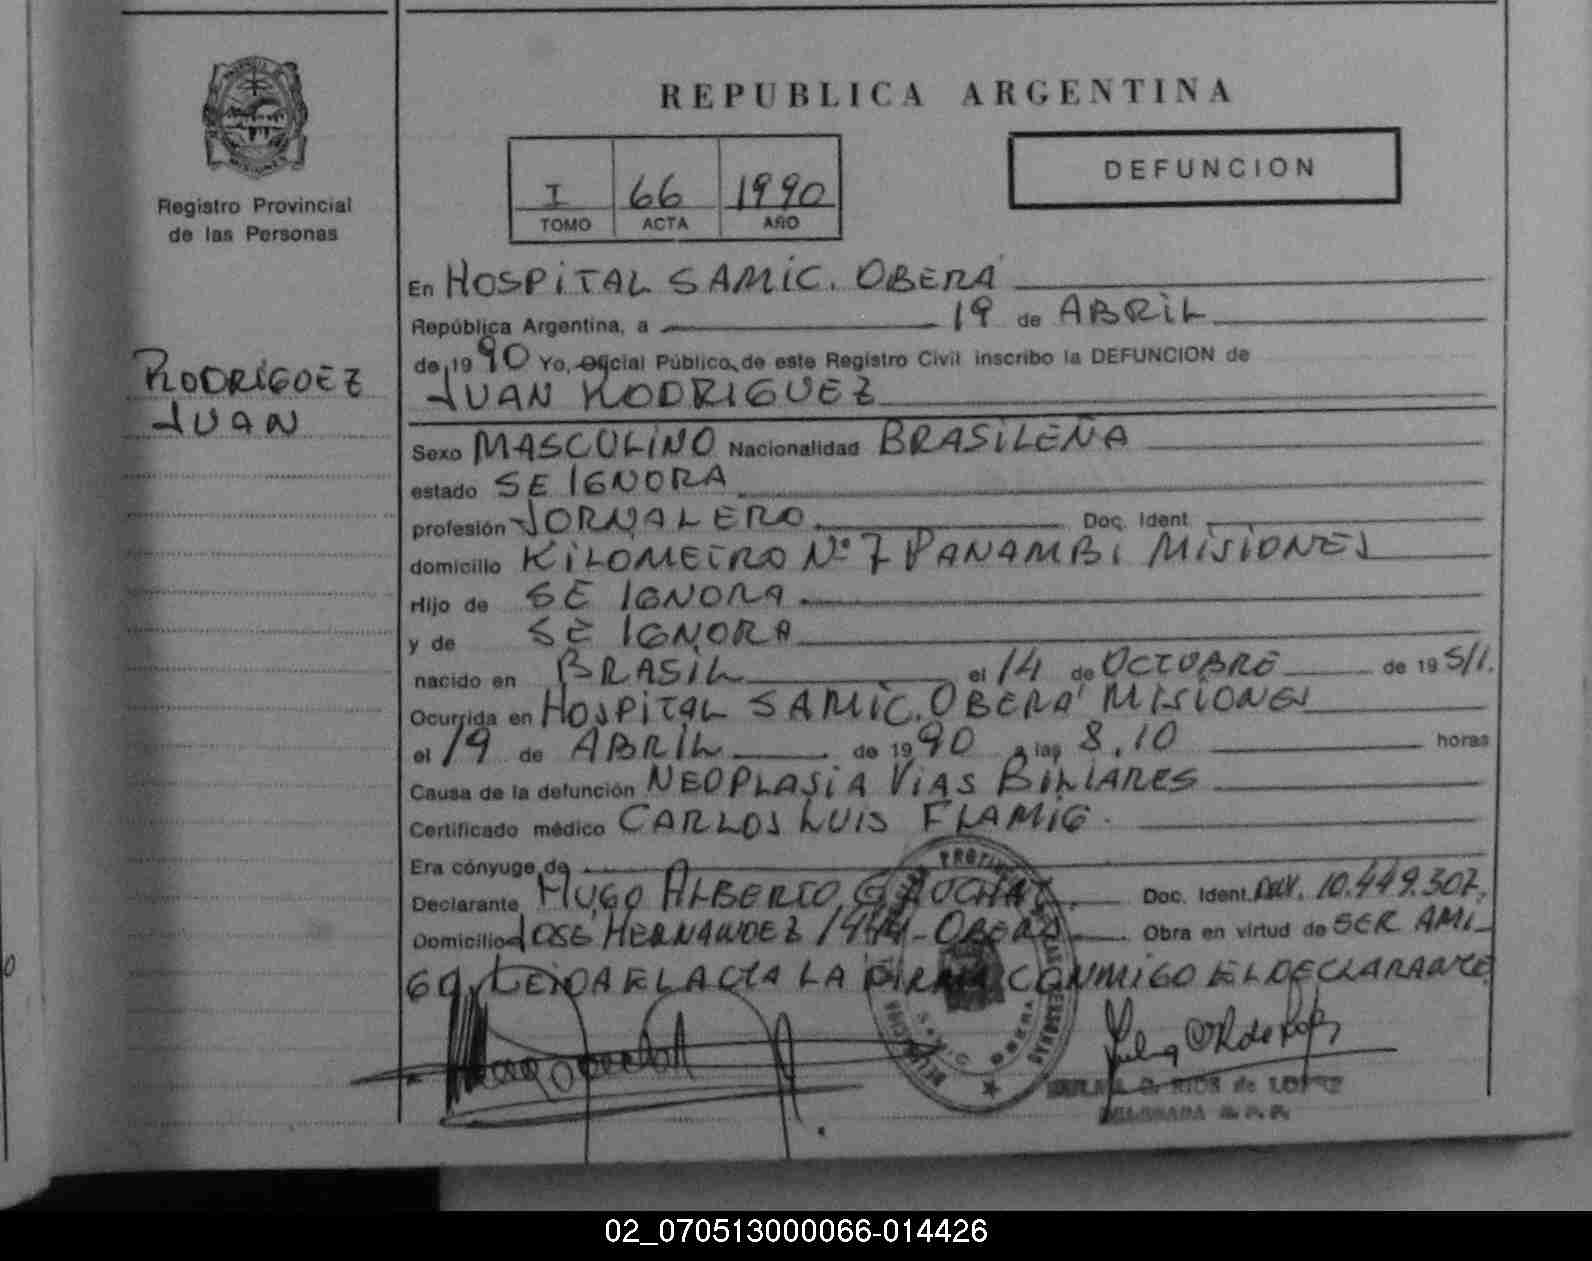 REPUBLICA ARGENTINA
DEFUNCION
I 66 1990
TOMO ACTA AÑO
Registro Provincial
de las Personas
RODRIGUEZ
JUAN
En HOSPITAL SAMIC. OBERA
República Argentina, a 19 de ABRIL
de 19 90 Yo, Oficial Público, de este Registro Civil inscribo la DEFUNCION de
JUAN RODRIGUEZ
Sexo MASCULINO Nacionalidad BRASILEÑA
estado SE IGNORA
profesión JORNALERO Doc. Ident.
domicilio KILOMETRO Nº 7 PANAMBI MISIONES
Hijo de SE IGNORA
y de SE IGNORA
nacido en BRASIL el 14 de OCTUBRE de 19
Ocurrida en HOSPITAL SAMIC. OBERA MISIONES
el 19 de ABRIL de 19 90 a las 8,10 horas
Causa de la defunción NEOPLASIA VIAS BILIARES
Certificado médico CARLOS LUIS FLAMIG.
Era cónyuge de
Declarante HUGO ALBERTO Doc. Ident. 10.449.307.
Domicilio JOSE HERNANDEZ OBERA Obra en virtud de SER AMI
GO. LEIDA EL ACTA LA FIRMA CONMIGO EL DECLARANTE
RIOS de LOPEZ
DELEGADA R. P. P.
02_070513000066-014426